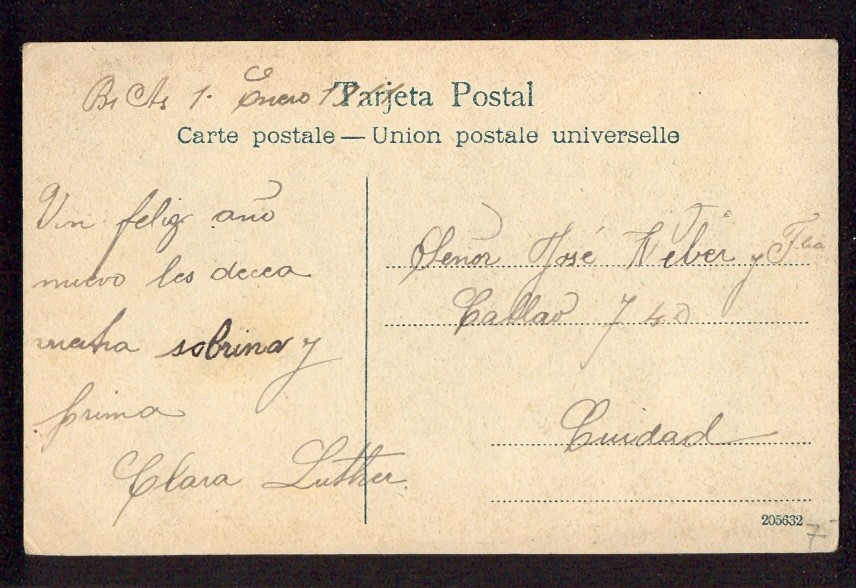 Bs As 1. Enero 1911
Tarjeta Postal
Carte postale — Union postale universelle
Un feliz año
nuevo les decea
sobrina y
prima
Clara Luther.
Señor José Weber y Flia
Callao 740
Cuidad
205632
7